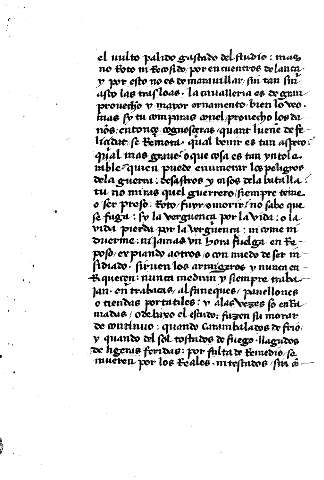 el vulto palido gastado del studio: mas
no Roto ni Recosido por encuentros de lança
y por esto no es de marauillar. sin tan sin
asco las trasloas. la caualleria es de gran
prouecho y mayor ornamento bien lo veo
mas sy tu comparas con el prouecho los da
nos. entonçe cognosceras. quant luenne de fe
liçidat se Remota. qual beuir es tan aspero
qual mas graue. o que cosa es tan yntole
rable. quien puede enumerar los peligros
dela guerra. desastros y casos dela batalla.
tu no miras quel guerrero siempre teme
o ser preso. Roto. fuyr o morir. no sabe que
se fuga: sy la verguença por la vida: o la
vida pierda por la verguença: ni come ni
duerme: ni jamas vn hora fuelga en Re
poso. expiando aotros o con miedo de ser in
sidiado. siruen los armigeros y nuncan en
Riqueçen: nunca medran y siempre traba
jan. en trabacas, alfaneques, pauellones
o tiendas portatiles: y alas vezes so enRa
madas, o debaxo el escudo: fazen su morar
de continuo: quando carambalados de frio
y quando del sol tostados de fuego. llagados
de ligeras feridas: por falta de Remedio, se
mueren por los Reales. intestados, sin